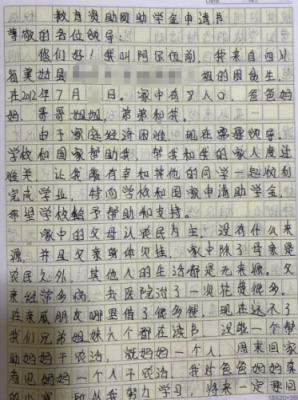 教育资助网助学金申请书
尊敬的各位领导:
您们好!我叫阿尼位前,我来自四川
省美姑县 组的困贫生,
在2012年7月 日。家中有8人口,爸爸妈
妈、哥哥姐姐、弟弟和我。
由于家庭经济困难,现在需要领导、
学校和国家帮助我,帮我和我的家人度过
难关,让我能有幸和其他的同学一起顺利
完成学业,特向学校和国家申请助学金,
希望学校给予帮助和支持。
家中的父母认农民为主,没有什么来
源,并且父亲身体欠佳,家中除了母亲是
农民之外,其他人的生活都是无来源,父
亲经常多病,去医院治了一次花费很多,
在亲戚朋友哪里借了很多钱,现在还不了
我们兄弟姐妹六个都在读书,没哪一个帮
助妈妈干农活,就妈妈一个人,周末回家
看见妈妈一个人干农活,我对爸爸妈妈亲
努力学习,将来一定来回